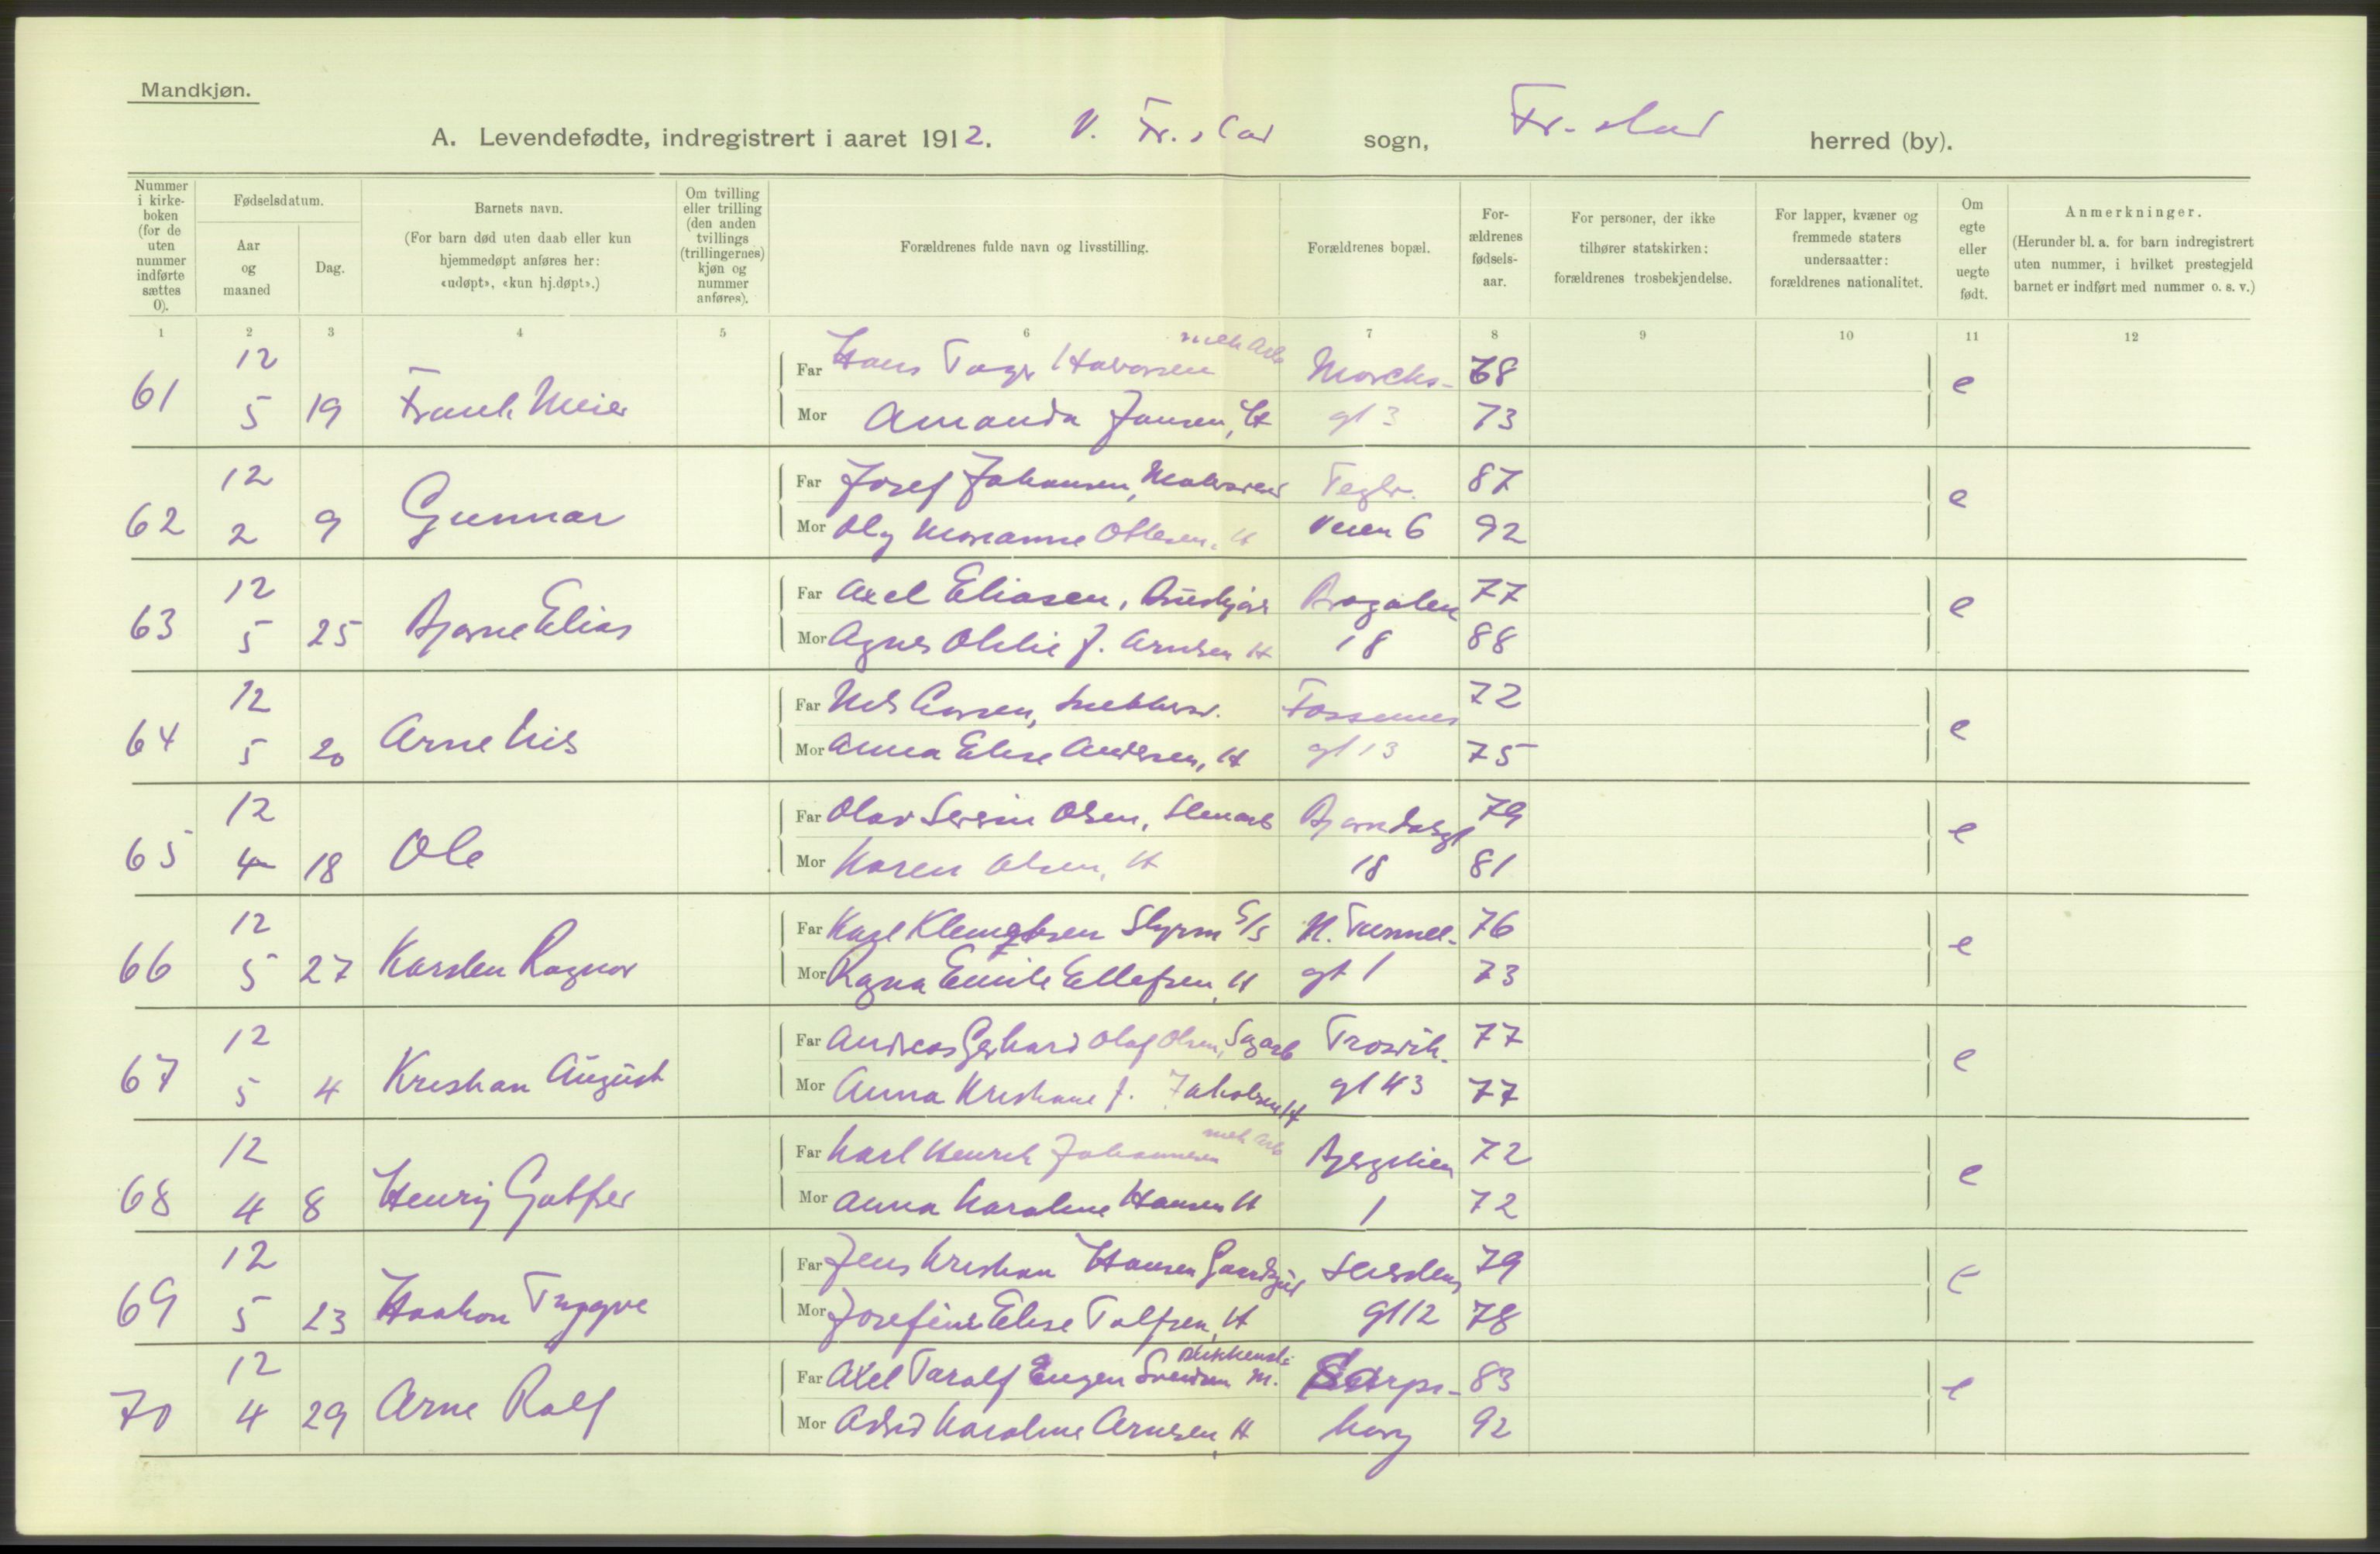 Mandkjøn.
A. Levendefødte, indregistrert i aaret 1912. V. Fr.stad sogn, Fr.stad herred (by).
Nummer i kirke-boken (for de uten nummer indførte sættes 0).
Fødselsdatum.
Aar og maaned
Dag.
Barnets navn.
(For barn død uten daab eller kun hjemmedøpt anføres her: «udøpt», «kun hj.døpt».)
Om tvilling eller trilling (den anden tvillings (trillingernes) kjøn og nummer anføres).
Forældrenes fulde navn og livsstilling.
Forældrenes bopæl.
For-ældrenes fødsels-aar.
For personer, der ikke tilhører statskirken: forældrenes trosbekjendelse.
For lapper, kvæner og fremmede staters undersaatter: forældrenes nationalitet.
Om egte eller uegte født.
Anmerkninger.
(Herunder bl. a. for barn indregistrert uten nummer, i hvilket prestegjeld barnet er indført med nummer o. s. v.)
1 2 3 4 5 6 7 8 9 10 11 12
12 Far Hans mek Arb 68
61 5 19 Frank Meier e
Mor Amanda Jansen, H gt 3 73
12 Far Josef Johansen, Teglv. 87
62 2 9 Gunnar e
Mor Marianne Ottesen, H veien 6 92
12 Far Axel Eliasen, 77
63 5 25 Bjarne Elias e
Mor Agnes Otilie J. Arntsen H 18 88
12 Far Nils 72
64 5 20 Arne Nils e
Mor Anna Elise Andersen, H gt 13 75
12 Far Olav Severin Olsen, Stenarb 79
65 4 18 Ole e
Mor Karen Olsen, H 18 81
12 Far Karl Klemetsen Styrm S/S N. Tunnel- 76
66 5 27 Karsten Ragnar e
Mor Ragna Emilie Ellefsen, H gt 1 73
12 Far Andreas Gerhard Olaf Olsen, Sagarb Trosvik- 77
67 5 4 Kristian August e
Mor Anna Kristiane J. Jakobsen H gt 43 77
12 Far Karl Henrik Johannesen mek Arb Bjerglien 72
68 4 8 Henry e
Mor Anna Karoline Hansen H 1 72
12 Far Jens Kristian Hansen 79
69 5 23 Haakon Trygve e
Mor Josefine Elise H gt 12 78
12 Far Axel Toralf Eugen Svendsen M. Sarps- 83
70 4 29 Arne Ralf e
Mor Astrid Karoline Arnesen, H borg 92